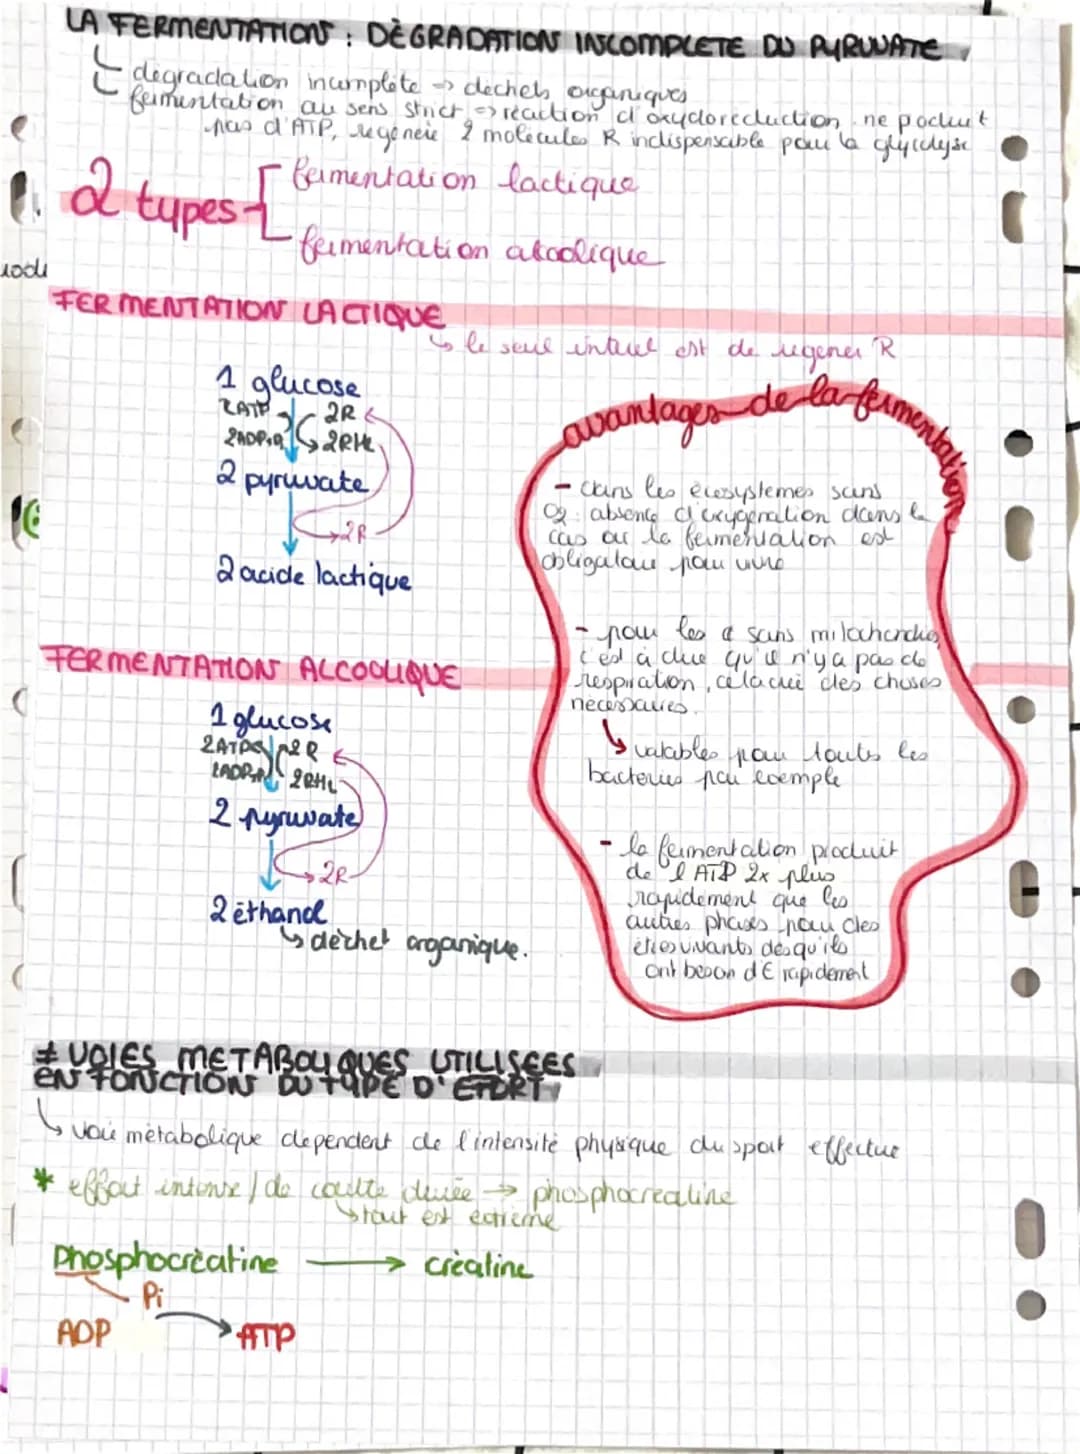 LA FERMENTATION : DÈGRADATION INCOMPLETE DU PYRUVATE
dégradation incomplète => déchets organiques
fermentation au sens strict => réaction d'oxydoreduction. ne poduit
pas d'ATP, regénère 2 molécules R indispensable pour la glycolyse
2 types
fermentation lactique
fermentation alcoolique
FERMENTATION LACTIQUE
↳ le seul intéret est de régénér R
1 glucose
2ATP 2R
2ADP+Pi 2RH2
2 pyruvate
2R
2 acide lactique
avantages de la fermentation
- dans les écosystemes sans
O2 : absence d'oxygénation dans le
cas où la fermentation est
obligatoire pour vivre
- pour les ¢ sans mitochondries,
c'est à dire qu'il n'y a pas de
respiration, cela crée des choses
nécessaires.
↳ valables pour toutes les
bacteries par exemple
- la fermentation produit
de l'ATP 2x plus
rapidement que les
autres phases pour des
êtres vivants dès qu'ils
ont besoin d'E rapidement
FERMENTATION ALCOOLIQUE
1 glucose
2ATP 2R
2ADP+Pi 2RH2
2 pyruvate
2R
2 éthanol
↳ déchet organique.
≠ VOIES METABOLIQUES UTILISEES
EN FONCTION DU TYPE D'EFORT
↳ voie métabolique dépendent de l'intensité physique du sport effectué
* effort intense / de courte durée → phosphocréatine
↳ tout est extrême
phosphocrèatine → crèatine
Pi
ADP → ATP